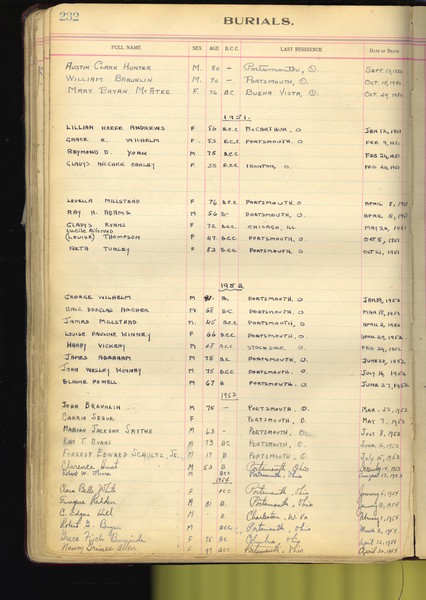 232
BURIALS.
FULL NAME SEX. AGE B.C.C. LAST RESIDENCE DATE OF DEATH
AUSTIN CLARK HUNTER M. 80 – PORTSMOUTH, O. SEPT.
WILLIAM BRAUNLIN M. 70 – PORTSMOUTH, O. OCT. 1950
MARY BRYAN MCATEE F. 76 B.C BUENA VISTA, O. OCT 29 1950
1951.
LILLIAN KEEFE ANDREWS F 86 B.C.C MCARTHUR, O JAN 12, 1951
GRACE R. WILHELM F 83 B.C.C PORTSMOUTH, O FEB 9, 1951
RAYMOND D. YORK M 75 B.C.C FEB 1951
GLADYS ARCHER OAKLEY F 55 B.C.C IRONTON, O FEB 1951
LUELLA MILLSTEAD F 76 B.C.C PORTSMOUTH, O APRIL 8, 1951
RAY H. ADAMS M 56 B– PORTSMOUTH, O. APRIL 1951
GLADYS EVANS F 72 B.C.C CHICAGO, ILL MAY 1951
(LOUISA) THOMPSON F 47 B.C.C PORTSMOUTH, O. OCT 5, 1951
TURLEY F 83 B.C.C PORTSMOUTH, O OCT 1951
1952
GEORGE WILHELM M B. PORTSMOUTH, O JAN 1952
ERIC DOUGLAS ARCHER M 68 B.C PORTSMOUTH, O MAR 1952
JAMES MILLSTEAD M. 45 B.C.C PORTSMOUTH, O APRIL 1952
LOUISE PAULINE KINNEY F 66 B.C.C PORTSMOUTH, O 1952
HARRY VICKERY M B.C.C O FEB 1952
JAMES ABRAHAM M 75 B.C. PORTSMOUTH. O JUNE 1952
JOHN WESLEY KINNEY M 75 B.C.C PORTSMOUTH. O JULY 14, 1952
BLAINE POWELL M 67 B PORTSMOUTH. O JUNE 27, 1952
1953
JOHN BRAUNLIN M 75 – PORTSMOUTH, O. MAR. 23, 1953
CARRIE F PORTSMOUTH, O MAY 7, 1953
MARION JACKSON SMYTHE M 63 – PORTSMOUTH, O. JULY 1953
RAY T. EVANS M 73 BC PORTSMOUTH, O JUNE 1953
FORREST EDWARD SCHULTZ, JR. M 17 B PORTSMOUTH, O JULY 15, 1953
Clarence Hunt M 53 B Portsmouth, Ohio 1953
Robert W. M BCC Portsmouth, Ohio August 1953
1954
Clara Belle White F BCC Portsmouth, Ohio January 1954
M 81 B. Portsmouth, Ohio January 1954
C. Edgar M B Charleston, W. Va February 1954
Robert G. M BCC. Portsmouth, Ohio March 1954
Grace Fitch F 75 BC Columbus, Ohio April 12, 1954
Grimes Allen F 97 BCC Portsmouth, Ohio April 30, 1954